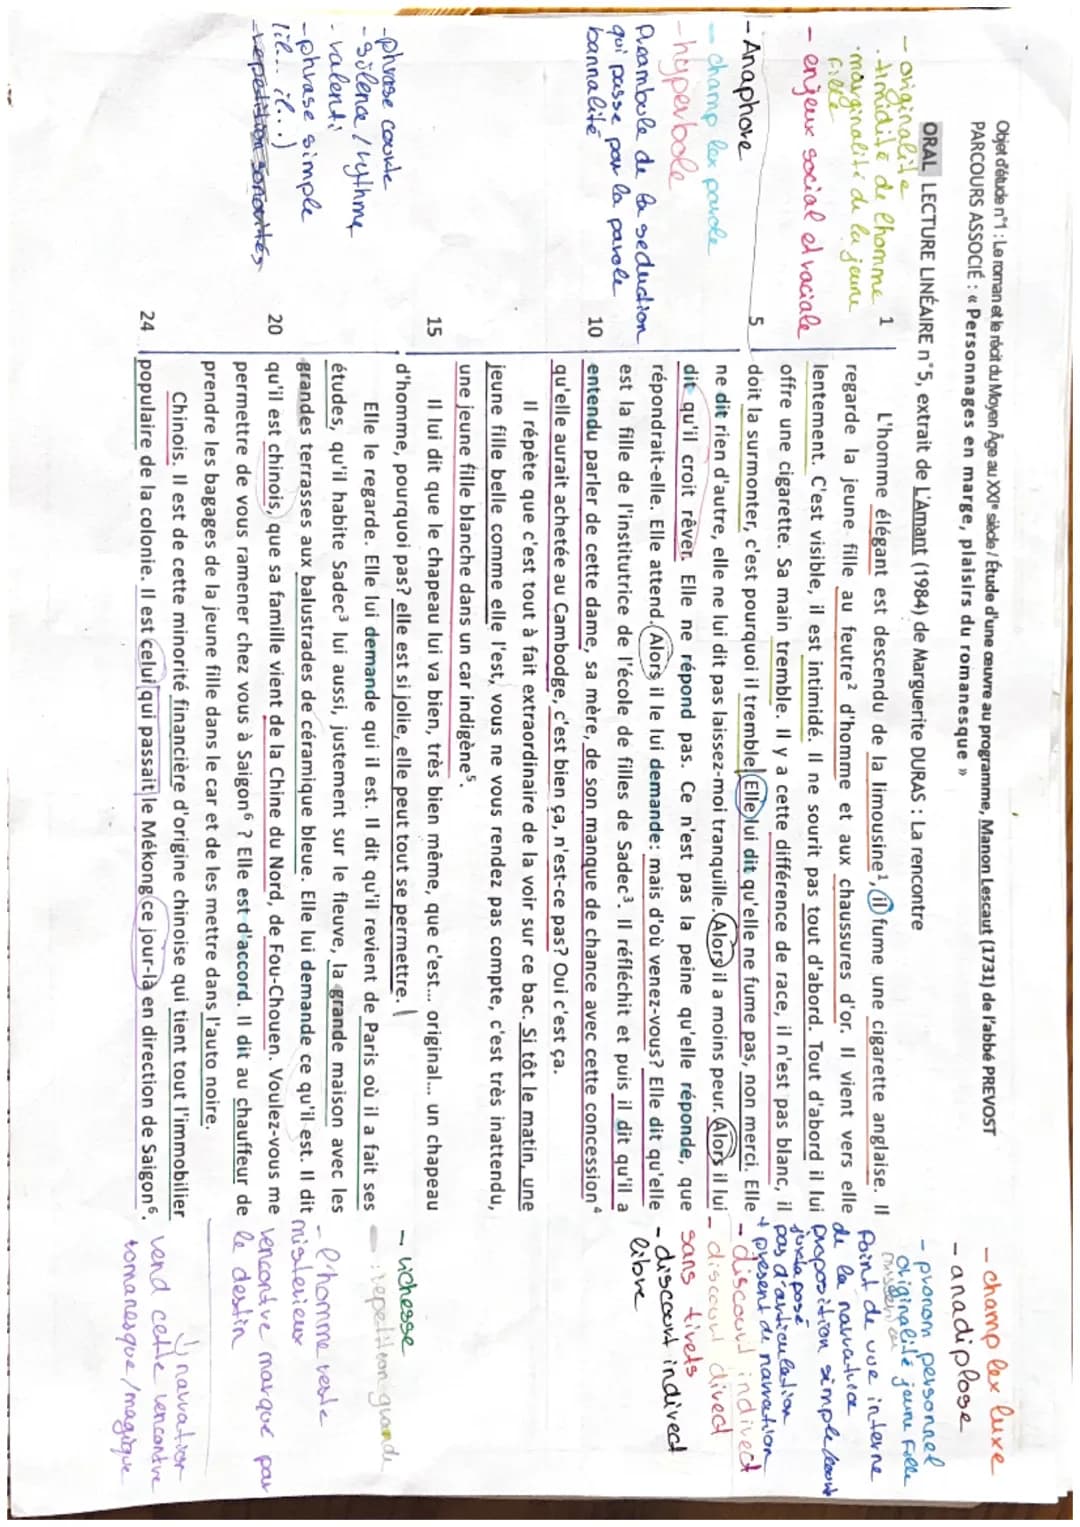 Objet d'étude n°1 : Le roman et le récit du Moyen Âge au XXIe siècle / Étude d'une œuvre au programme, Manon Lescaut (1731) de l'abbé PREVOST
PARCOURS ASSOCIÉ : « Personnages en marge, plaisirs du romanesque »
ORAL LECTURE LINÉAIRE n°5, extrait de L'Amant (1984) de Marguerite DURAS : La rencontre
1 L'homme élégant est descendu de la limousine¹, il fume une cigarette anglaise. Il
regarde la jeune fille au feutre² d'homme et aux chaussures d'or. Il vient vers elle
lentement. C'est visible, il est intimidé. Il ne sourit pas tout d'abord. Tout d'abord il lui
offre une cigarette. Sa main tremble. Il y a cette différence de race, il n'est pas blanc, il
5 doit la surmonter, c'est pourquoi il tremble. Elle lui dit qu'elle ne fume pas, non merci. Elle
ne dit rien d'autre, elle ne lui dit pas laissez-moi tranquille. Alors il a moins peur. Alors il lui
dit qu'il croit rêver. Elle ne répond pas. Ce n'est pas la peine qu'elle réponde, que
répondrait-elle. Elle attend. Alors il le lui demande: mais d'où venez-vous? Elle dit qu'elle
est la fille de l'institutrice de l'école de filles de Sadec³. Il réfléchit et puis il dit qu'il a
10 entendu parler de cette dame, sa mère, de son manque de chance avec cette concession⁴
qu'elle aurait achetée au Cambodge, c'est bien ça, n'est-ce pas? Oui c'est ça.
Il répète que c'est tout à fait extraordinaire de la voir sur ce bac. Si tôt le matin, une
jeune fille belle comme elle l'est, vous ne vous rendez pas compte, c'est très inattendu,
une jeune fille blanche dans un car indigène⁵.
15 Il lui dit que le chapeau lui va bien, très bien même, que c'est... original... un chapeau
d'homme, pourquoi pas? elle est si jolie, elle peut tout se permettre.
Elle le regarde. Elle lui demande qui il est. Il dit qu'il revient de Paris où il a fait ses
études, qu'il habite Sadec³ lui aussi, justement sur le fleuve, la grande maison avec les
grandes terrasses aux balustrades de céramique bleue. Elle lui demande ce qu'il est. Il dit
20 qu'il est chinois, que sa famille vient de la Chine du Nord, de Fou-Chouen. Voulez-vous me
permettre de vous ramener chez vous à Saigon⁶ ? Elle est d'accord. Il dit au chauffeur de
prendre les bagages de la jeune fille dans le car et de les mettre dans l'auto noire.
Chinois. Il est de cette minorité financière d'origine chinoise qui tient tout l'immobilier
24 populaire de la colonie. Il est celui qui passait le Mékong ce jour-là en direction de Saigon⁶.
- originalité
. timidité de l'homme
. marginalité de la jeune
fille
- enjeux social et raciale
- Anaphore
- champ lex parole
- hyperbole
Preambule de la seduction
qui passe par la parole
bannalité
- phrase courte
- silence / rythme
- valenti
- phrase simple
(il... il...)
- repetition sonorités
- champ lex luxe
- anadiplose
- pronom personnel
originalité jeune fille
Point de vue interne
de la narratrice
proposition simple/court
juxtaposé
pas d'articulation
+ présent de narration
- discourt indirect
- discourt direct
sans tirets
- discourt indirect
libre
- richesse
- : repetition grande
- l'homme reste
misterieux
rencontre marqué par
le destin
narration
rend cette rencontre
romanesque / magique